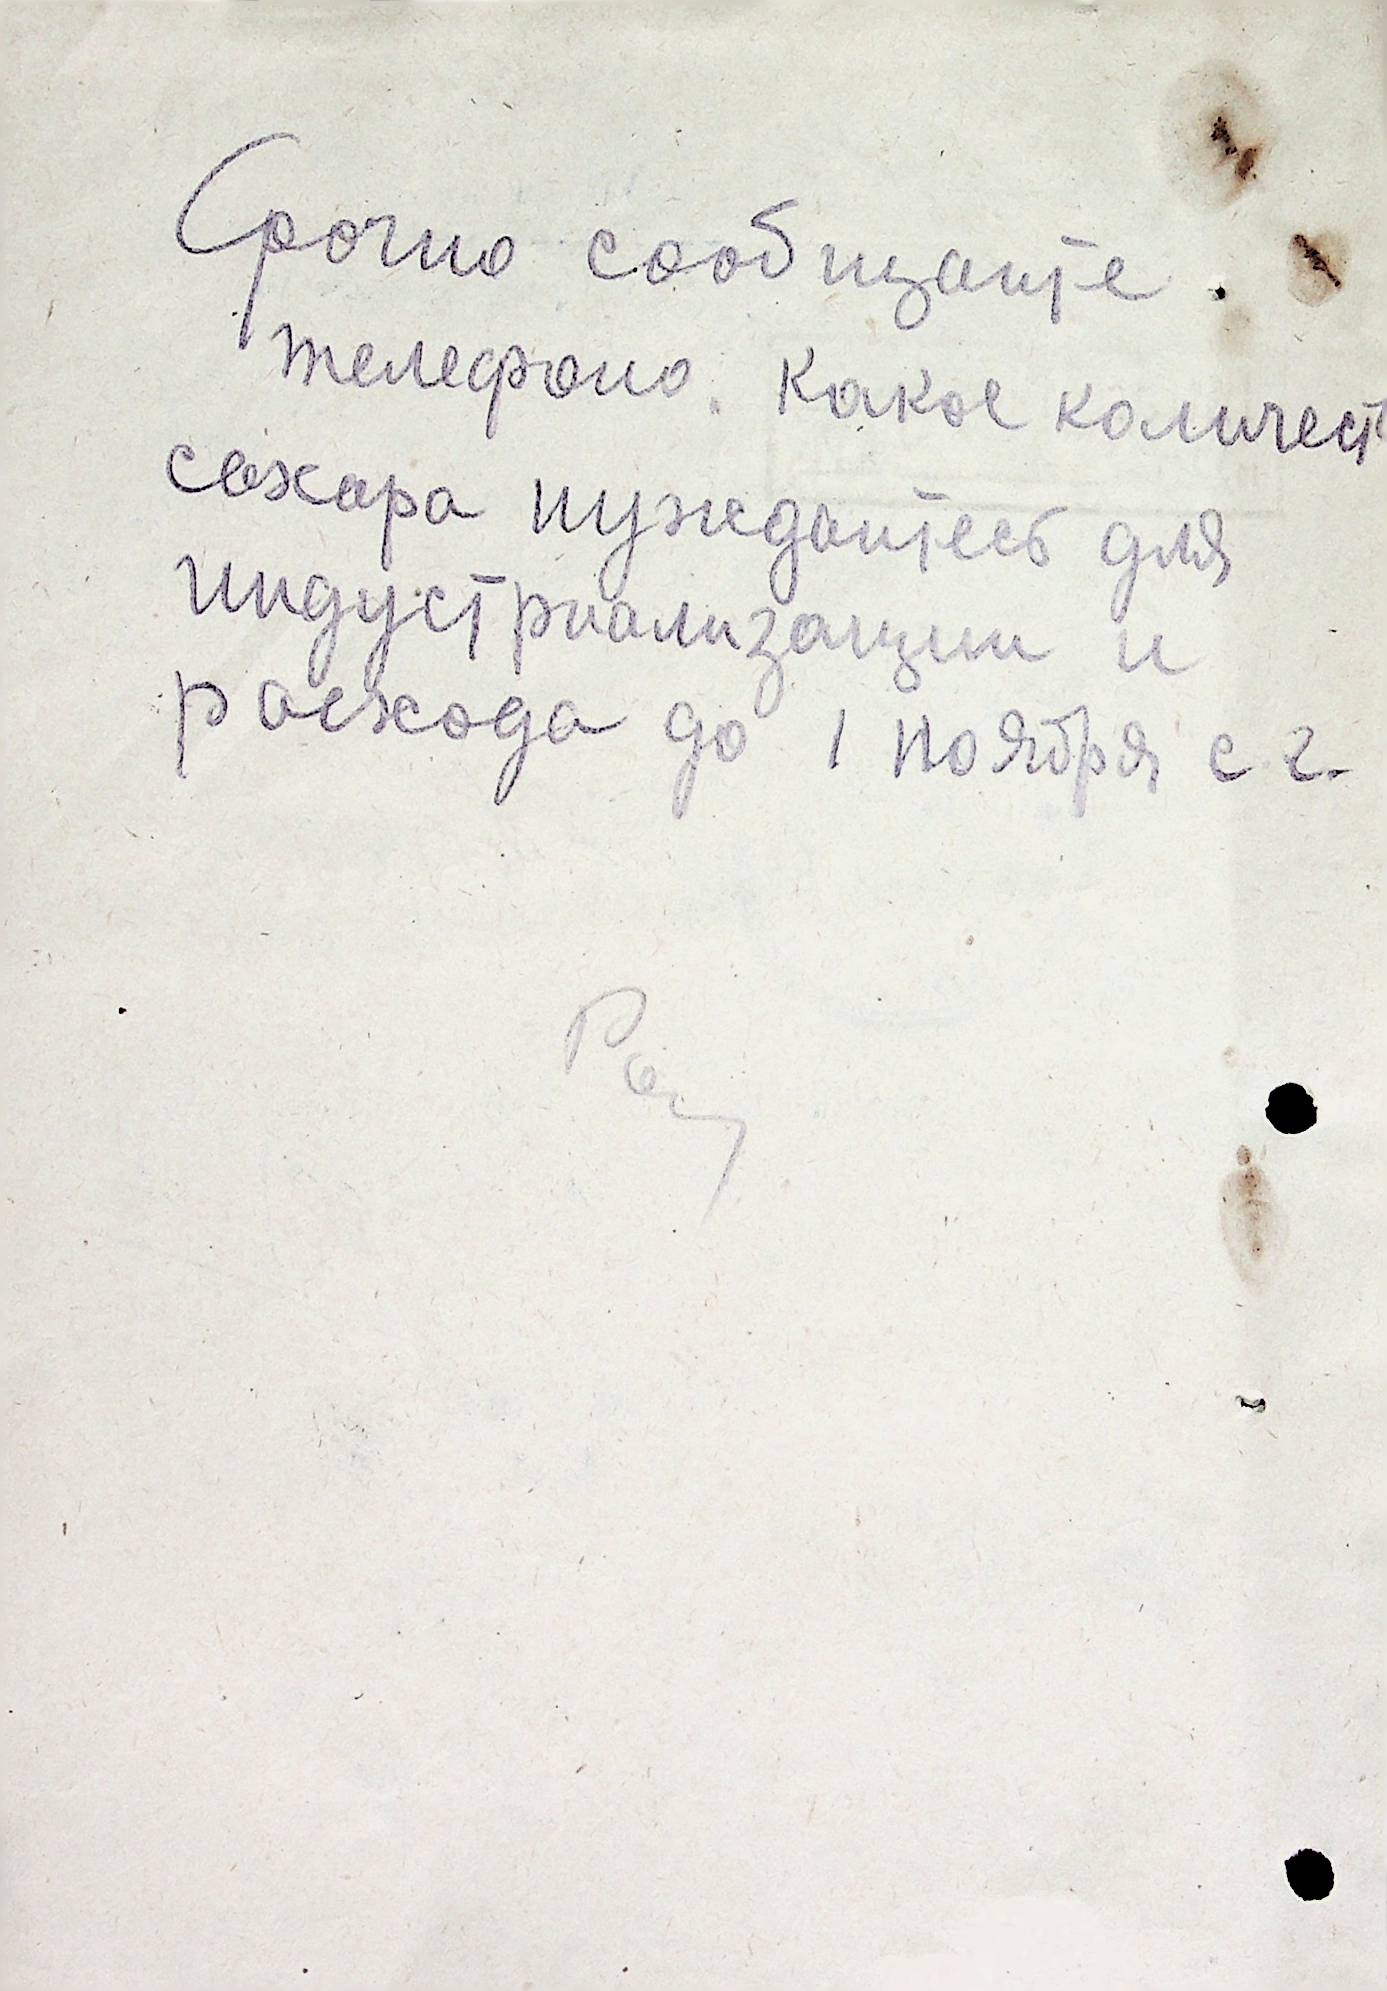 Срочно сообщаите
телефоно. Какое количест
сахара нуждаитесь для
индустриализации и
расхода до 1 ноября с. г.